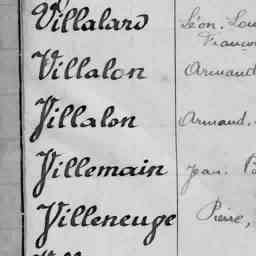 Villalard Léon. Lou
François
Villalon Armand
Villalon Armand.
Villemain Jean.
Villeneuve Pierre,